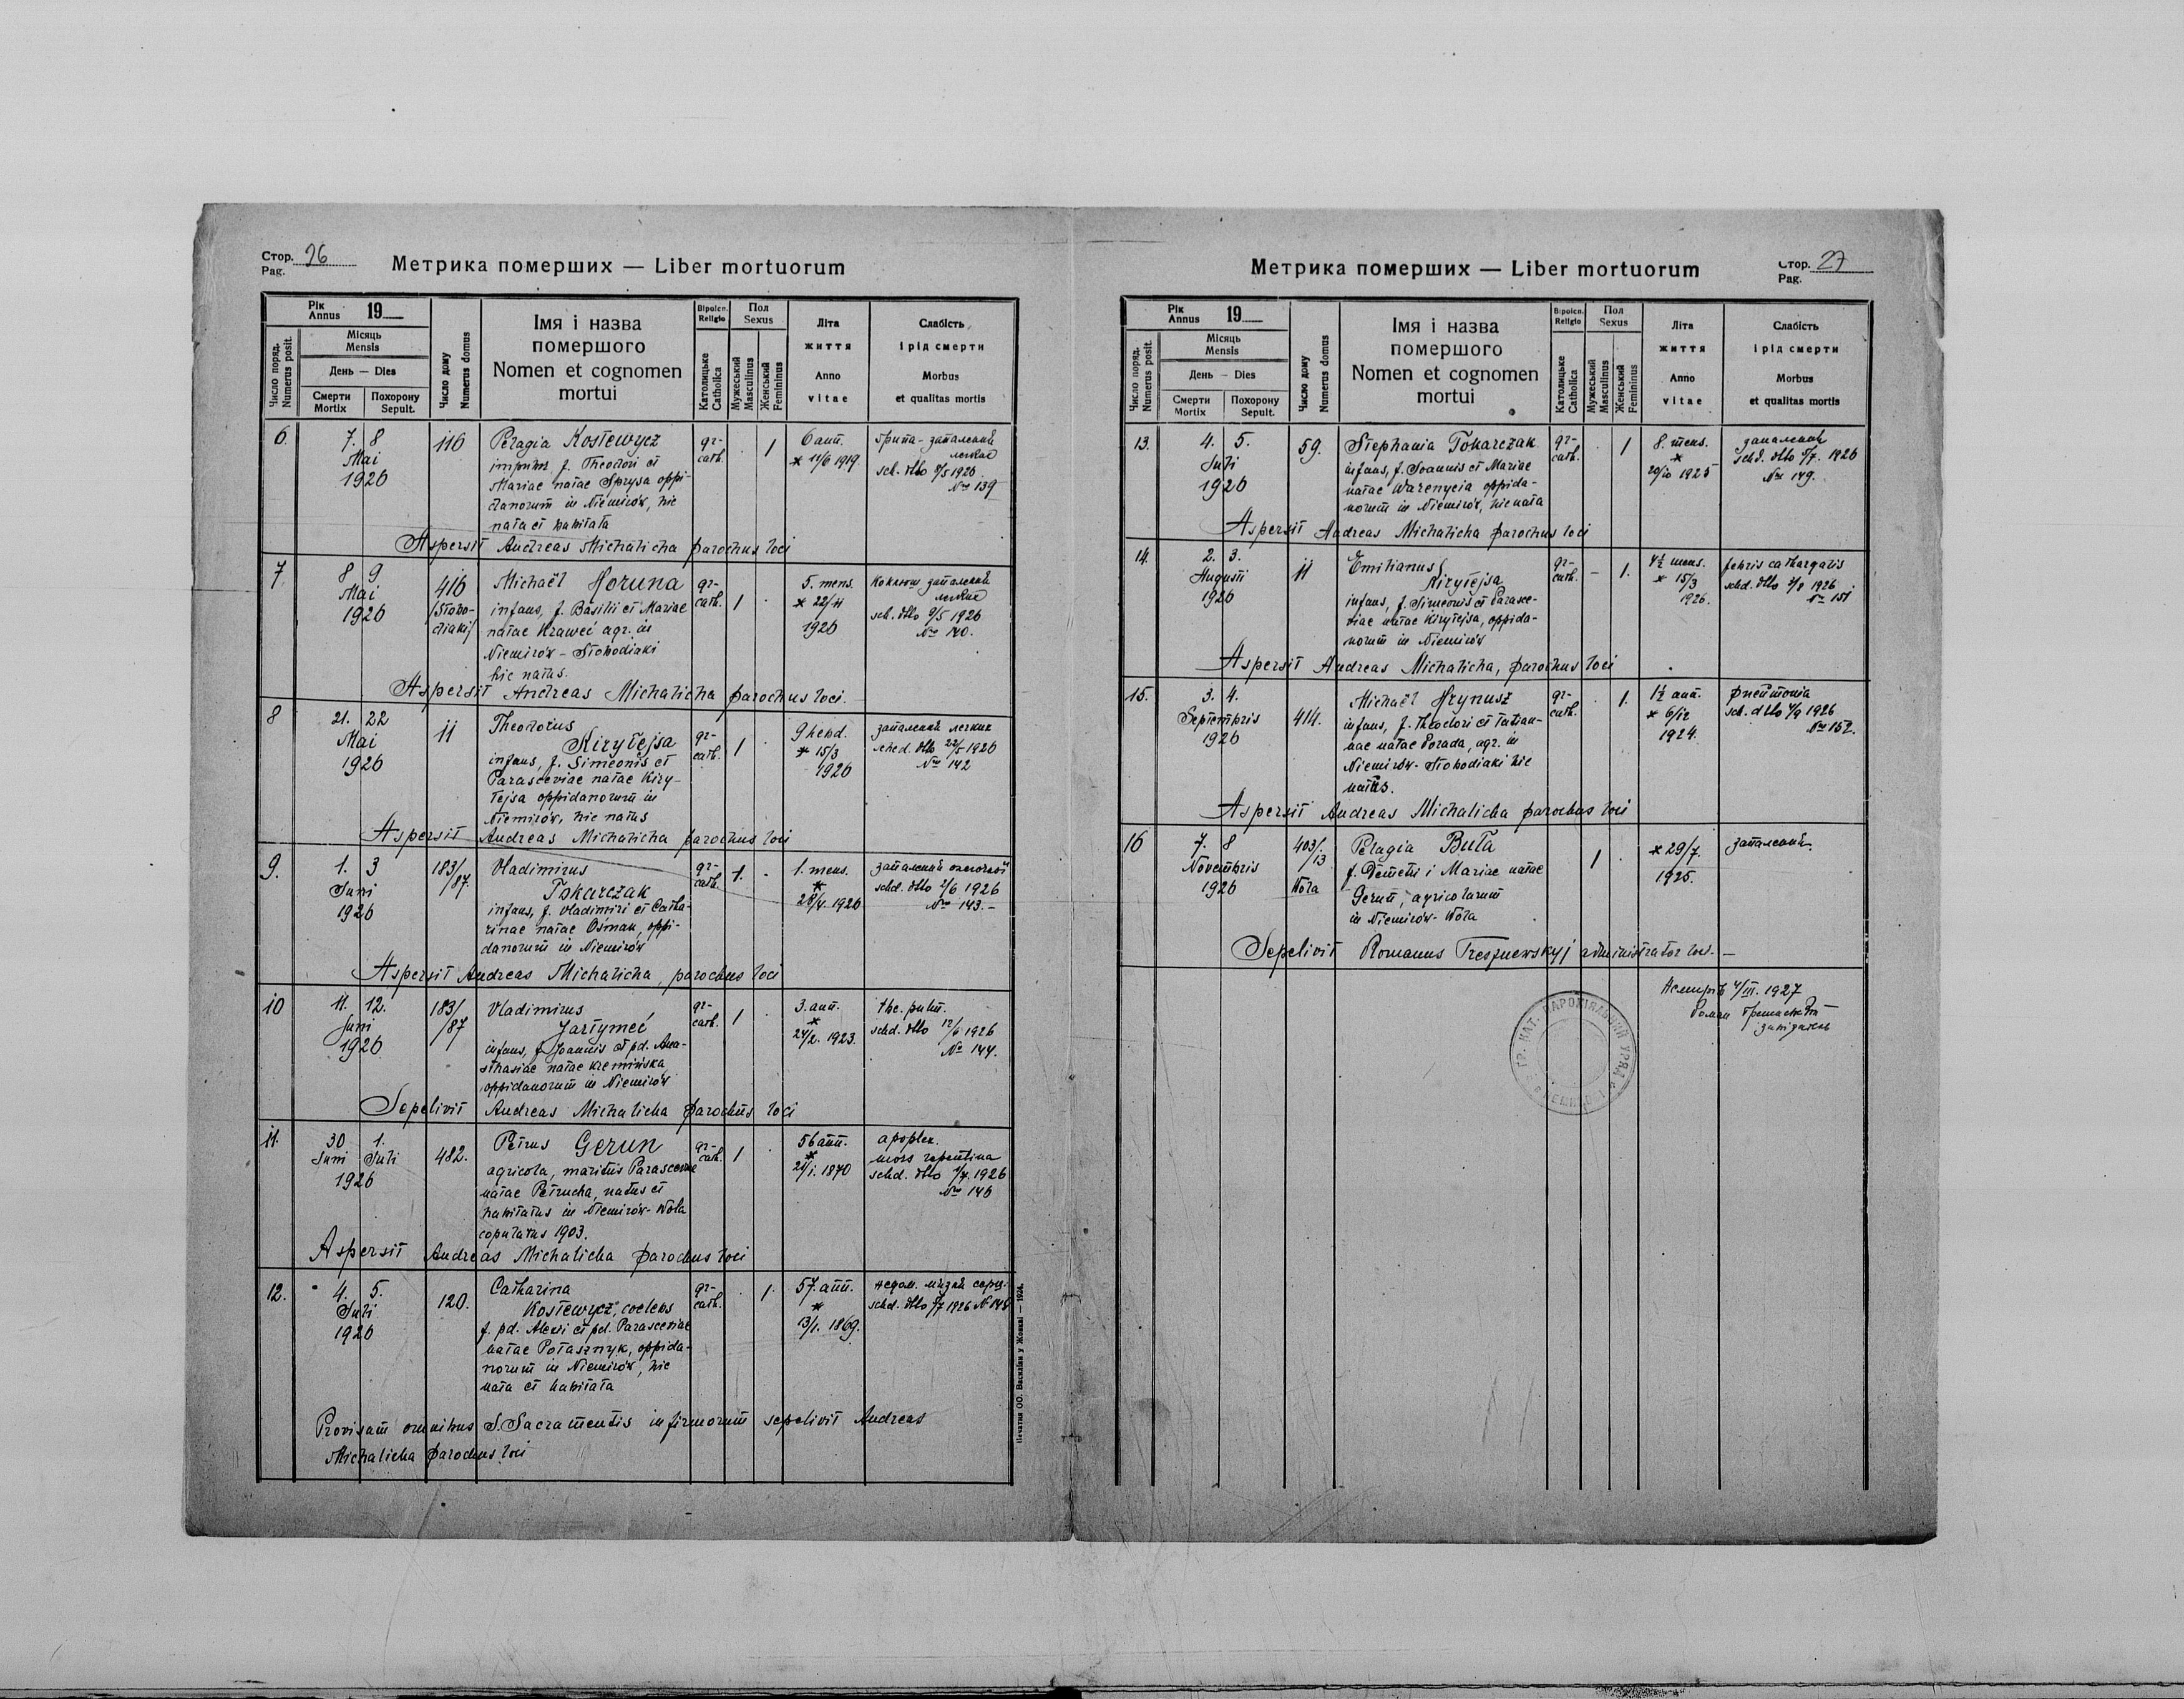 Стор. 26
Pag.
Метрика помершиx — Liber mortuorum
Рік
Annus 19
Місяць
Mensis
День — Dies
Число поряд.
Numerus posit.
Смерти
Mortix
Похорону
Sepult.
Число дому
Numerus domus
Імя і назва
помершого
Nomen et cognomen
mortui
Віроісп.
Religio
Католицьке
Catholica
Пол
Sexus
Мужеський
Masculinus
Женський
Femininus
Літа
життя
Anno
vitae
Слабість
і рід смерти
Morbus
et qualitas mortis
6. 7. 8 Mai 1926 116
Pelagia Kostewycz
f. Theodori et
Mariae natae Sprysa oppi-
danorum in Niemirów, hic
nata et habitata
gr-
cath. 1
6 ann.
* 11/6 1919.
sch. dtto 8/5 1926
No 139
Aspersit Andreas Michalicha parochus loci
7 8 9 Mai 1926 416
Michaël Horuna
infans, f. Basilii et Mariae
natae Kraweć agr. in
Niemirów - Stohodiaki
hic natus.
gr-
cath. 1
5. mens.
1926
sch. dtto 9/5 1926
No 140.
Aspersit Andreas Michalicha parochus loci.
8 21. 22 Mai 1926 11
Theodorus
Kirytejsa
infans, f. Simeonis et
Parasceviae natae Kiry-
tejsa oppidanorum in
Niemirów, hic natus
gr-
cath. 1
9 hebd.
* 15/3
1926
запалення легких
sched. dtto 22/5 1926
No 142
Aspersit Andreas Michalicha parochus loci
9. 1. 3 Juni 1926 183/87.
Vladimirus
Tokarczak
infans, f. Vladimiri et Catha-
rinae natae Osman, oppi-
danorum in Niemirów
gr-
cath. 1.
1. mens.
*
28/4. 1926
schd. dtto 2/6 1926
No 143.-
Aspersit Andreas Michalicha, parochus loci
10 11. 12. Juni 1926 183/87
Vladimirus
Jartymeć
infans, f. Joannis et pd. Ana-
sthasiae natae Kremińska
oppidanorum in Niemirów
gr-
cath. 1
3. ann.
*
24/2. 1923.
tbc. pulm.
schd. dtto 12/6 1926
No 144.
Sepelivit Andreas Michalicha parochus loci
11. 30 Juni 1. Juli 1926 482.
Petrus Gerun
agricola, maritus Parasceviae
natae Petrucha, natus et
habitatus in Niemirów-Wola
copulatus 1903.
gr-
cath. 1
56 ann.
*
21/1. 1870
apoplex.
mors repentina
schd. dtto 1/7. 1926
No 146
Aspersit Andreas Michalicha parochus loci
12. 4. 5. Juli 1926 120.
Catharina
Kostewycz, coelebs
f. pd. Alexii et pd. Parasceviae
natae Potasznyk, oppida-
norum in Niemirów, hic
nata et habitata
gr-
cath. 1.
57. ann.
*
13/1. 1869.
schd. dtto 5/7 1926 No 148
Provisam omnibus S. Sacramentis infirmorum sepelivit Andreas
Michalicha parochus loci
Печатня ОО. Василіян у Жовкві — 1924.
Стор. 27
Pag.
Метрика помершиx — Liber mortuorum
Рік
Annus 19
Місяць
Mensis
День — Dies
Число поряд.
Numerus posit.
Смерти
Mortix
Похорону
Sepult.
Число дому
Numerus domus
Імя і назва
помершого
Nomen et cognomen
mortui
Віроісп.
Religio
Католицьке
Catholica
Пол
Sexus
Мужеський
Masculinus
Женський
Femininus
Літа
життя
Anno
vitae
Слабість
і рід смерти
Morbus
et qualitas mortis
13. 4. 5. Juli 1926 59.
Stephania Tokarczak
infans, f. Joannis et Mariae
natae Warenycia oppida-
norum in Niemirów, hic nata
gr-
cath. 1
8. mens.
*
20/10 1925
запалення
schd. dtto 5/7. 1926
No 149.
Aspersit Andreas Michalicha parochus loci
14. 2. 3. Augusti 1926 11
Emilianus
Kirytejsa
infans, f. Simeonis et Parasce-
viae natae Kirytejsa, oppida-
norum in Niemirów
gr-
cath. - 1.
4½ mens.
* 15/3
1926.
febris catharralis
schd. dtto 2/8 1926
No 151
Aspersit Andreas Michalicha, parochus loci
15. 3. 4. Septembris 1926 414.
Michaël Hrynusz
infans, f. Theodori et Tatian-
nae natae Porada, agr. in
Niemirów-Stohodiaki hic
natus.
gr-
cath. 1.
1½ ann.
* 6/12
1924.
pneumonia
sch. dtto 4/9 1926
No 152.
Aspersit Andreas Michalicha parochus loci
16 7. 8 Novembris 1926 403/13 Wola
Pelagia Buła
f. Demetri i Mariae natae
Gerun, agricolarum
in Niemirów-Wola
1
* 29/7.
1925.
запалення.
Sepelivit Romanus Tresznewskyj administrator loci.-
Немирів 4/III. 1927
Роман